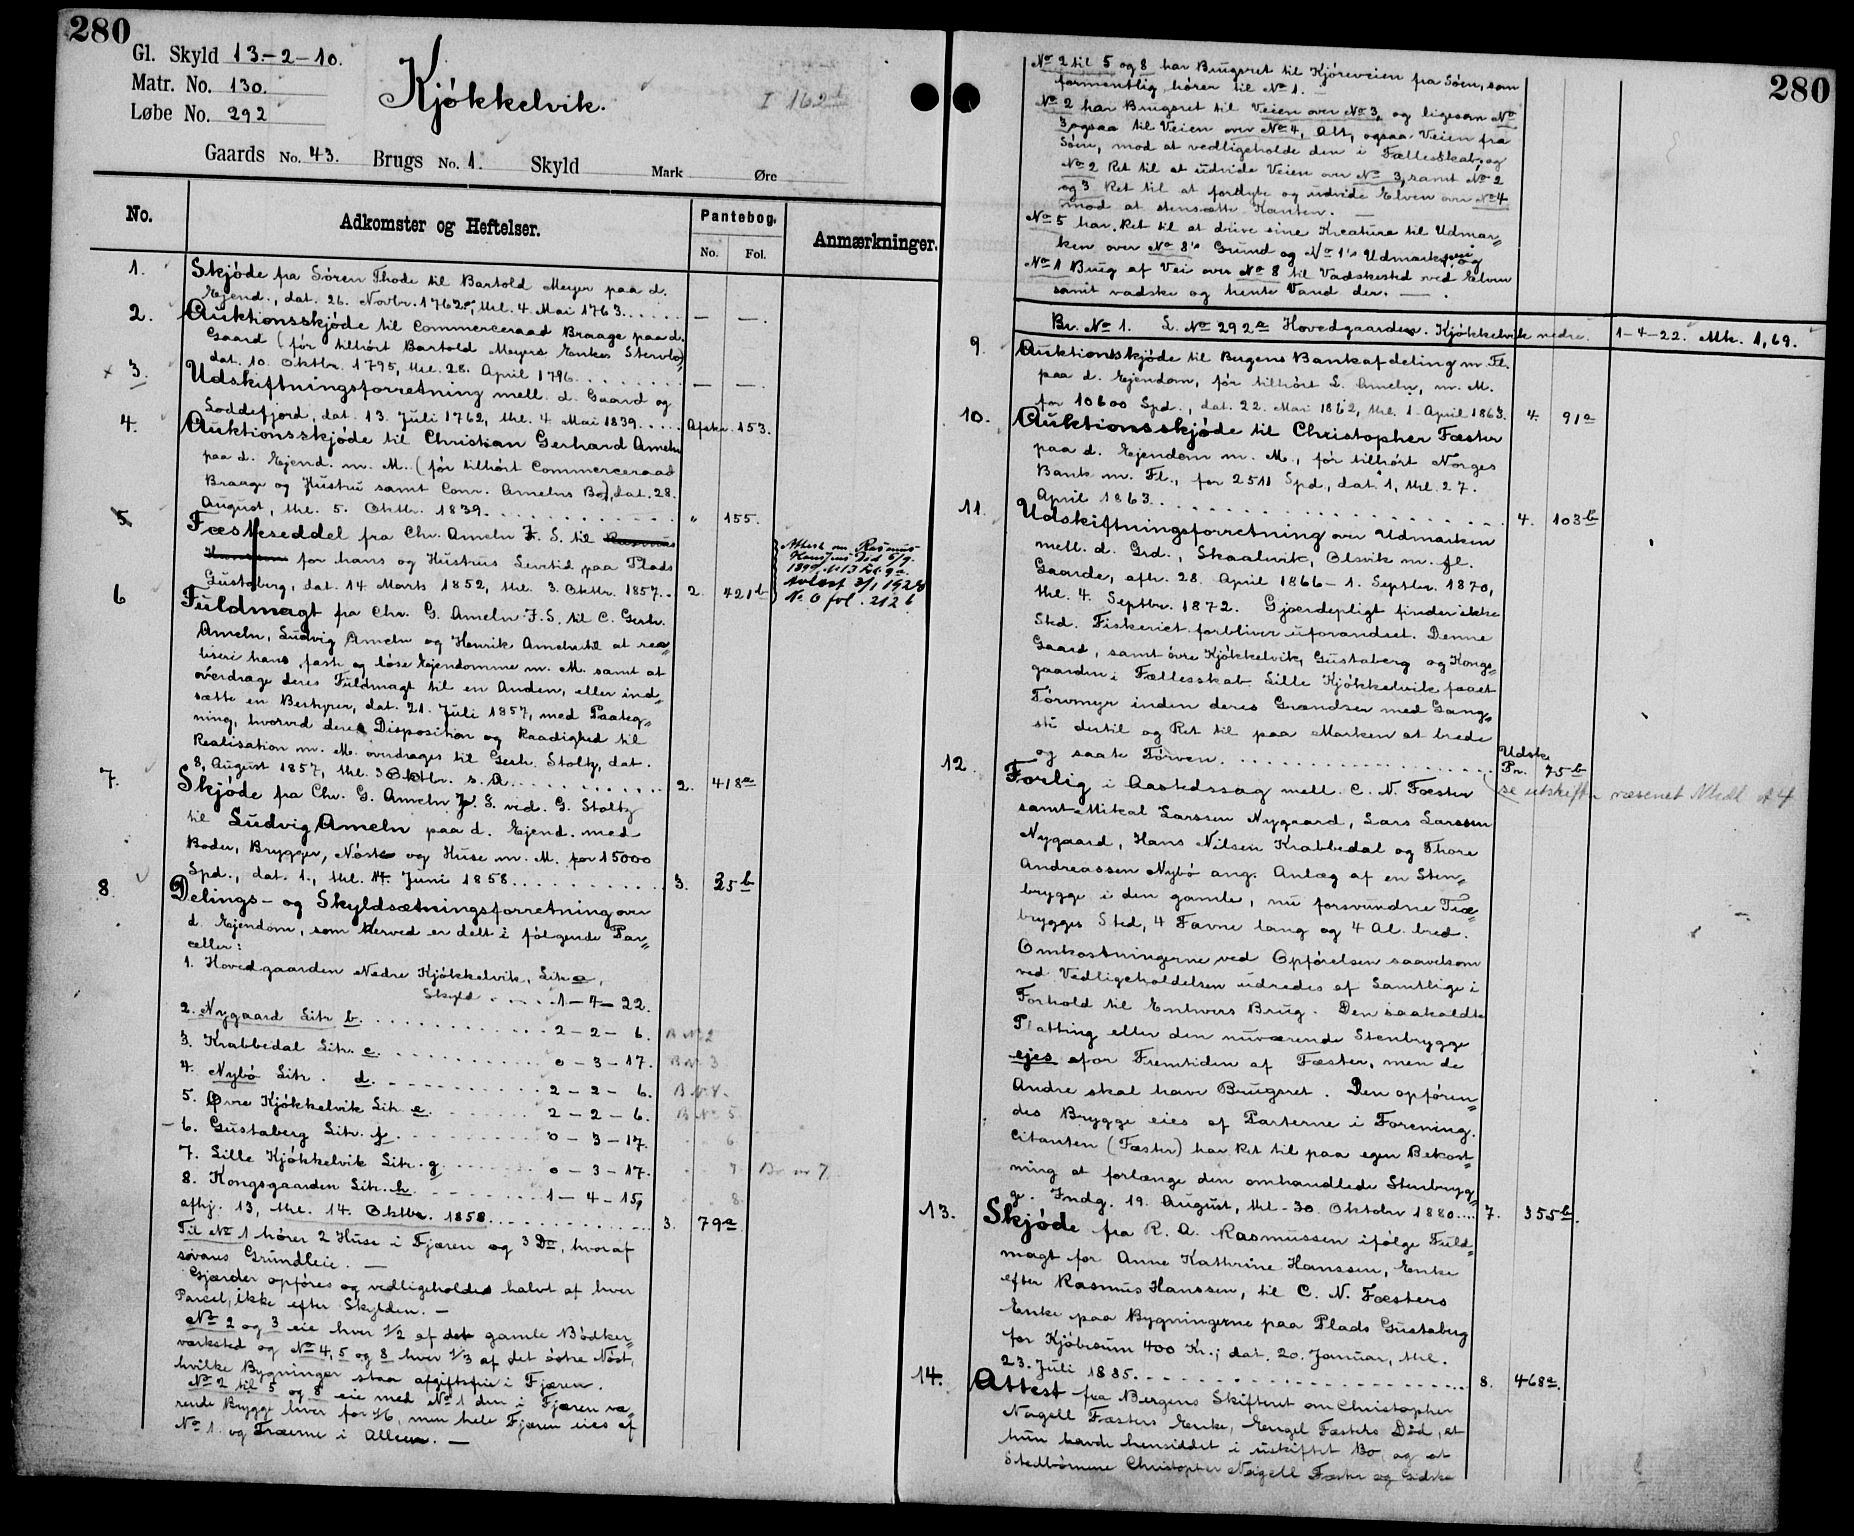 280
Gl. Skyld 13-2-10.
Matr. No. 130.
Løbe No. 292
Kjökkelvik.
I 162
Gaards No. 43. Brugs No. 1. Skyld Mark Øre
No. Adkomster og Heftelser. Pantebog. Anmærkninger.
No. Fol.
1. Skjöde fra Sören Thode til Bartold Meyer paa d.
Ejend., dat. 26. Novbr. 1762, thl. 4. Mai 1763......
2. Auktionsskjöde til Commerceraad Braage paa d.
Gaard (för tilhört Bartold Meyers Enkes Stervbo)
dat. 10. Oktbr. 1795, thl. 28. April 1796.........
x 3. Udskiftningsforretning mell. d. Gaard og
Loddefjord, dat. 13. Juli 1762, thl. 4 Mai 1839..... Afskr. 153.
4. Auktionsskjöde til Christian Gerhard Ameln
paa d. Ejend. m. M. (för tilhört Commerceraad
Braage og Hustru samt Conr. Amelns Bo), dat. 28.
August, thl. 5. Oktbr. 1839............ " 155.
5 Fæsteseddel fra Chr. Ameln F. S. til Rasmus
Hanssen for hans og Hustrus Levetid paa Plads
Gustaberg, dat. 14 Marts 1852, thl. 3. Oktbr. 1857.. 2. 421b
Attest om Rasmus
Hanssens Död 5/9
avlest 3/1 1928
No 6 fol. 212 b
6 Fuldmagt fra Chr. G. Ameln F. S. til C. Gerh.
Ameln, Ludvig Ameln og Henrik Ameln til at rea„
lisere hans faste og löse Ejendomme m. M. samt at
overdrage deres Fuldmagt til en Anden, eller ind„
sætte en Bestyrer, dat. 21. Juli 1857, med Paateg„
ning, hvorved deres Disposition og Raadighed til
Realisation m. M. overdrages til Gerh. Stoltz, dat.
8. August 1857, thl. 3 Oktbr. s. A............ 2. 418a
7. Skjöde fra Chr. G. Ameln F. S. ved. G. Stoltz
til Ludvig Ameln paa d. Ejend. med
Boder, Brygger, Nöste og Huse m. M. for 15000
Spd., dat. 1., thl. 14. Juni 1858............ 3. 35b
8. Delings- og Skyldsætningsforretning over
d. Ejendom, som herved er delt i fölgende Par„
celler:
1. Hovedgaarden Nedre Kjökkelvik, Litr. a,
Skyld ..... 1-4-22.
2. Nygaard Litr b. ............ 2-2-6. B No 2
3. Krabbedal Litr. c. ............ 0-3-17. B No 3
4. Nybö Litr. d. ............ 2-2-6. B No 4.
5. Øvre Kjökkelvik Litr. e. ........ 2-2-6. B No 5
6. Gustaberg Litr. f. ............ 0-3-17. 6
7. Lille Kjökkelvik Litr. g. ........ 0-3-17. 7 Br nr 7
8. Kongsgaarden Litr. h. ........ 1-4-15, 8
afhj. 13, thl. 14. Oktbr. 1858............ 3. 79a
Til No 1 hörer 2 Huse i Fjæren og 3 Do, hvoraf
svares Grundleie. —
Gjærder opföres og vedligeholdes halvt af hver
Parcel, ikke efter Skylden. —
No 2 og 3 eie hver 1/2 af det gamle Bödker„
værksted og No 4, 5 og 8 hver 1/3 af det östre Nöst,
hvilke Bygninger staa afgiftsfrie i Fjæren.
No 2 til 5 og 8 eie med No 1 den i Fjæren væ„
rende Brygge hver for 1/6, men hele Fjæren eies af
No 1 og Træerne i Alleen. —
280
No 2 til 5 og 8 har Brugsret til Kjöreveien fra Söen, som
formentlig hörer til No 1. —
No 2 har Brugsret til Veien over No 3, og ligesom No
3, ogsaa til Veien over No 4, Alt, ogsaa Veien fra
Söen, mod at vedligeholde den i Fællesskab, og
No 2 Ret til at udvide Veien over No 3, samt No 2
og 3 Ret til at fordybe og udvide Elven over No 4
mod at stensætte Kanten. —
No 5 har Ret til at drive sine Kreature til Udmar„
ken over No 8's Grund og No 1's Udmarksvei, og
No 1 Brug af Vei over No 8 til Vadskested ved Elven
samt vadske og hente Vand der. —
Br. No 1. L. No 292a Hovedgaarden Kjökkelvik nedre. 1-4-22. Mk. 1,69.
9. Auktionsskjöde til Bergens Bankafdeling m. Fl.
paa d. Ejendom, för tilhört L. Ameln, m. M.
for 10600 Spd., dat. 22. Mai 1862, thl. 1. April 1863. 4. 91a
10. Auktionsskjöde til Christopher Fæster
paa d. Ejendom m. M., för tilhört Norges
Bank m. Fl., for 2511 Spd., dat. 1, thl. 27.
April 1863............ 4. 103b
11. Udskiftningsforretning over Udmarken
mell. d. Grd., Skaalvik, Olsvik m. fl.
Gaarde, afh. 28. April 1866 - 1. Septbr. 1870,
thl. 4. Septbr. 1872. Gjærdepligt finder ikke
Sted. Fiskeriet forbliver uforandret. Denne
Gaard, samt övre Kjökkelvik, Gustaberg og Kongs„
gaarden i Fællesskab. Lille Kjökkelvik faaet
Törvmyr inden deres Grændser med Gang„
sti dertil og Ret til paa Marken at brede
og saate Törven............ Udsk. Pr. 75b
(se utskiftn væsenet
12. Forlig i Aastedssag mell. C. N. Fæster
samt Mikal Larssen Nygaard, Lars Larssen
Nygaard, Hans Nilsen Krabbedal og Thore
Andreassen Nybö ang. Anlæg af en Sten„
brygge i den gamle, nu forsvundne Træ„
brygges Sted, 4 Favne lang og 4 Al. bred.
Omkostningerne ved Opförelsen saavelsom
ved Vedligeholdelsen udredes af Samtlige i
Forhold til Enhvers Brug. Den saakaldte
Platting eller den nuværende Stenbrygge
ejes for Fremtiden af Fæster, men de
Andre skal have Brugsret. Den opfören„
des Brygge eies af Parterne i Forening.
Citanten (Fæster) har Ret til paa egen Bekost„
ning at forlænge den omhandlede Stenbryg„
ge. Indg. 19. August, thl. 30. Oktober 1880.... 7. 355b.
13. Skjöde fra R. A. Rasmussen ifölge Fuld„
magt for Anne Kathrine Hanssen, Enke
efter Rasmus Hanssen, til C. N. Fæsters
Enke paa Bygningerne paa Plads Gustaberg
for Kjöbesum 400 Kr.; dat. 20. Januar, thl.
23. Juli 1885............ 8. 468a.
14. Attest fra Bergens Skifteret om Christopher
Neigell Fæsters Enke, Engel Fæsters Död, at
hun havde hensiddet i uskiftet Bo, og at
Stedbörnene Christopher Neigell Fæster og Gidske